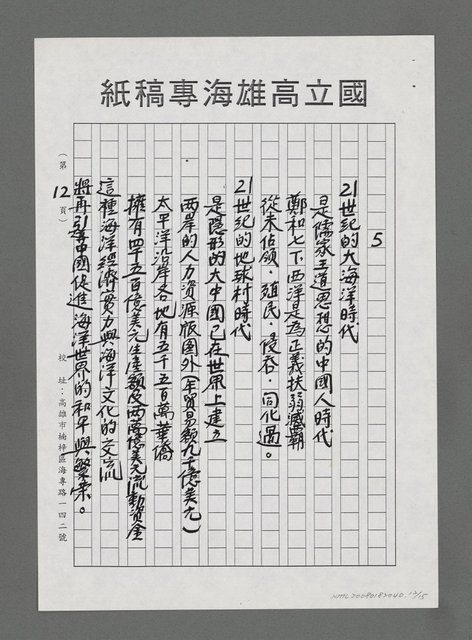 紙稿專海雄高立國
5
21世紀的大海洋時代
是儒家王道思想的中國人時代
鄭和七下西洋是為正義扶弱滅霸
從未佔領、殖民、侵吞、同化過。
21世紀的地球村時代
是隱形的大中國已在世界上建立
兩岸的人力資源版圖外(年貿易額九千億美元)
太平洋沿岸各地有五千五百萬華僑
擁有四千五百億美元生產額及兩萬億美元流動資金
這種海洋經濟實力與海洋文化的交流
將再引導中國促進海洋世界的和平與繁榮。
(第12頁)
校址:高雄市楠梓區海專路一四二號
NMTL20080182040. 12/15